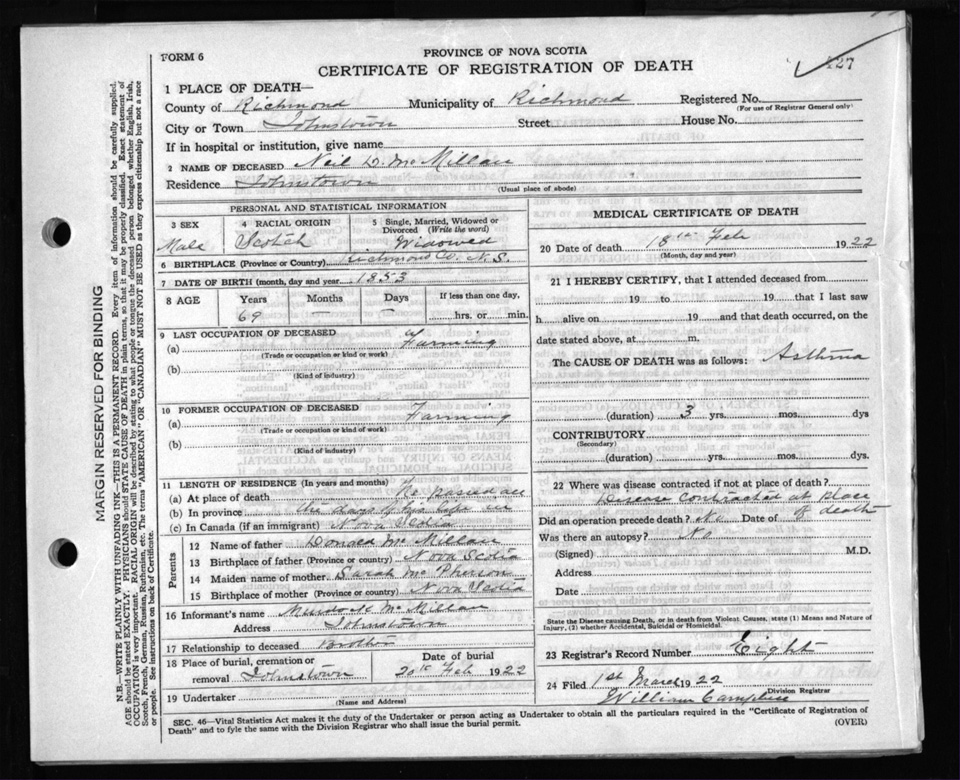 FORM 6
PROVINCE OF NOVA SCOTIA
CERTIFICATE OF REGISTRATION OF DEATH
427
1 PLACE OF DEATH—
County of Richmond Municipality of Richmond Registered No.
(For use of Registrar General only)
City or Town Johnstown Street House No.
If in hospital or institution, give name
2 NAME OF DECEASED Neil D. McMillan
Residence Johnstown
(Usual place of abode)
PERSONAL AND STATISTICAL INFORMATION
3 SEX 4 RACIAL ORIGIN 5 Single, Married, Widowed or Divorced (Write the word)
Male Scotch Widowed
6 BIRTHPLACE (Province or Country) Richmond Co. N.S.
7 DATE OF BIRTH (month, day and year) 1853
8 AGE Years Months Days If less than one day,
69 – – hrs. or min.
9 LAST OCCUPATION OF DECEASED
(a) Farming
(Trade or occupation or kind or work)
(b)
(Kind of industry)
10 FORMER OCCUPATION OF DECEASED
(a) Farming
(Trade or occupation or kind or work)
(b)
(Kind of industry)
11 LENGTH OF RESIDENCE (In years and months)
(a) At place of death He passed all
(b) In province the days of his life in
(c) In Canada (if an immigrant) Nova Scotia
Parents
12 Name of father McMillan
13 Birthplace of father (Province or country) Nova Scotia
14 Maiden name of mother Sarah McPherson
15 Birthplace of mother (Province or country) Nova Scotia
16 Informant's name Murdock McMillan
Address Johnstown
17 Relationship to deceased Brother
18 Place of burial, cremation or removal Johnstown Date of burial 20th Feb 1922
19 Undertaker
(Name and Address)
MEDICAL CERTIFICATE OF DEATH
20 Date of death 18th Feb 1922
(Month, day and year)
21 I HEREBY CERTIFY, that I attended deceased from
19 to 19 that I last saw
h alive on 19 and that death occurred, on the
date stated above, at m.
The CAUSE OF DEATH was as follows: Asthma
(duration) 3 yrs. mos. dys
CONTRIBUTORY
(Secondary)
(duration) yrs. mos. dys.
22 Where was disease contracted if not at place of death?
Disease contracted at place of death
Did an operation precede death? No Date of
Was there an autopsy? No
(Signed) M.D.
Address
Date
State the Disease causing Death, or in death from Violent Causes, state (1) Means and Nature of Injury, (2) whether Accidental, Suicidal or Homicidal.
23 Registrar's Record Number Eight
24 Filed 1st March 1922
William Campbell
Division Registrar
SEC. 46—Vital Statistics Act makes it the duty of the Undertaker or person acting as Undertaker to obtain all the particulars required in the "Certificate of Registration of
Death" and to fyle the same with the Division Registrar who shall issue the burial permit. (OVER)
MARGIN RESERVED FOR BINDING
N.B.—WRITE PLAINLY WITH UNFADING INK—THIS IS A PERMANENT RECORD. Every item of information should be carefully supplied.
AGE should be stated EXACTLY. PHYSICIANS should STATE CAUSE OF DEATH in plain terms, so that it may be properly classified. Exact statement of
OCCUPATION is very important. RACIAL ORIGIN will be described by stating to what people or tongue the deceased person belonged whether English, Irish,
Scotch, French, German, Russian, Ruthenian, etc. The terms "AMERICAN" OR "CANADIAN" MUST NOT BE USED as they express citizenship but not a race
or people. See instructions on back of Certificate.